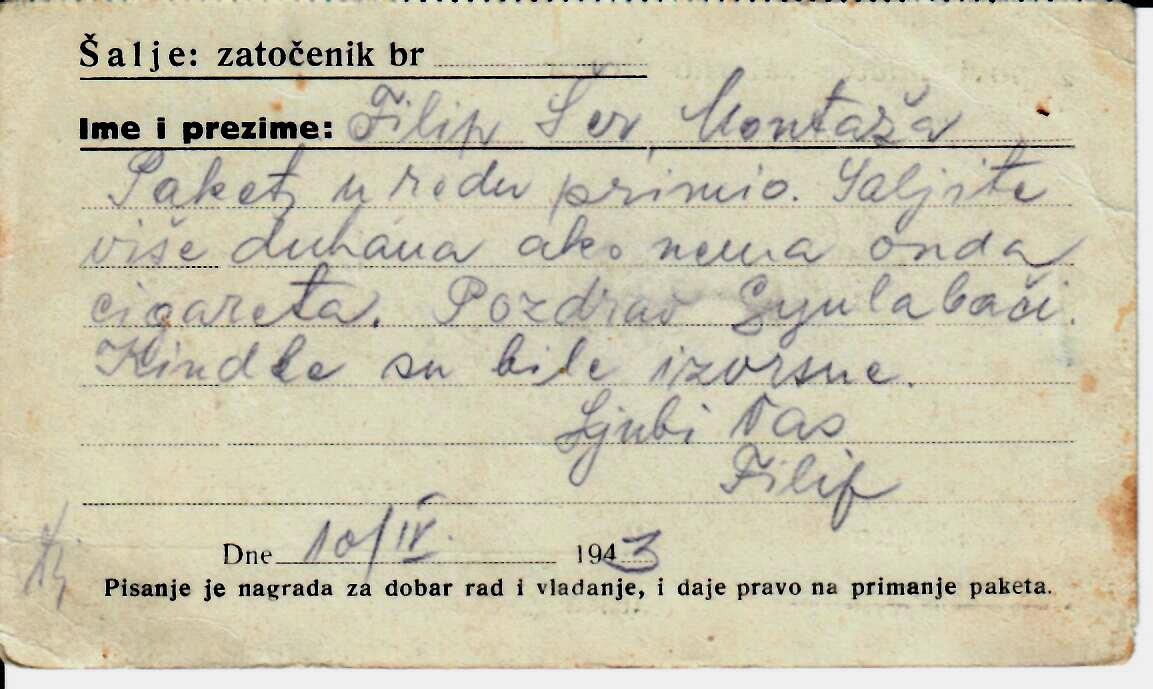 Šalje: zatočenik br
Ime i prezime: Filip Šer, Montaža
Paket u redu primio. Šaljite
više duhana ako nema onda
cigareta. Pozdrav Gyulabači.
Kindle su bile izvorsne.
Ljubi Vas
Filip
Dne 10/IV. 1943
Pisanje je nagrada za dobar rad i vladanje, i daje pravo na primanje paketa.